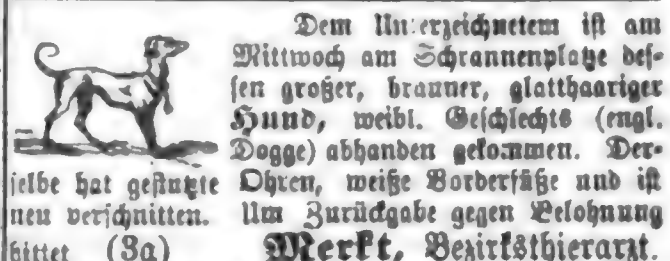 Dem Unterzeichnetem ist am
Mittwoch am Schrannenplatze des-
sen großer, brauner, glatthaariger
Hund, weibl. Geschlechts (engl.
Dogge) abhanden gekommen. Der-
selbe hat gestutzte Ohren, weiße Vorderfüße und ist
neu verschnitten. Um Zurückgabe gegen Belohnung
bittet (3a) Merkt, Bezirksthierarzt.